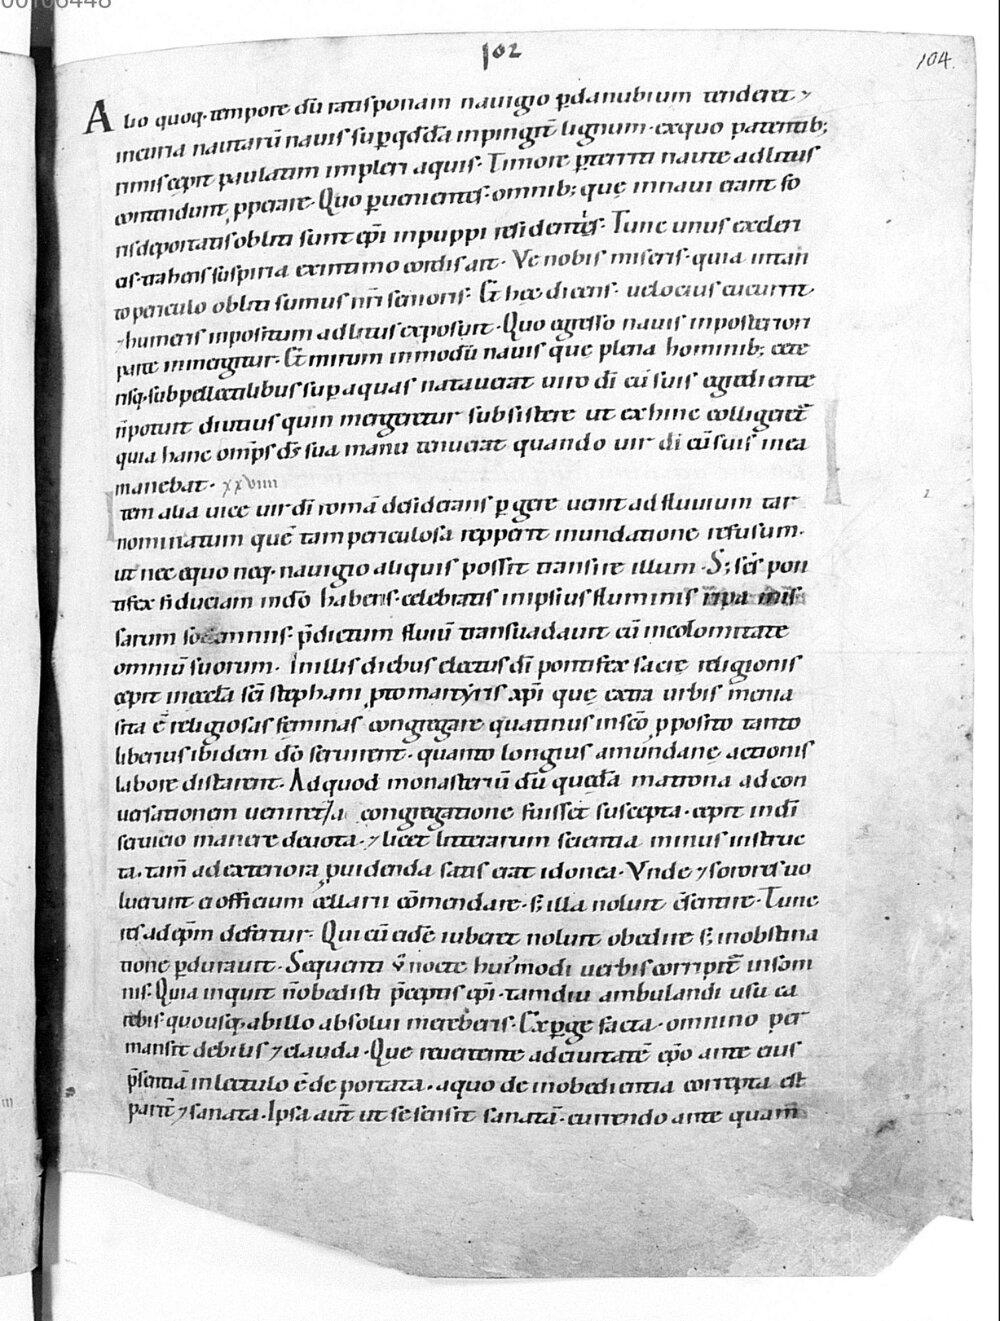 00106448
102
104.
Alio quoq; tempore dū ratisponam nauigio p̱danubium tenderet ⁊
incuria nautarū nauis sup̱ q̄ddā inpingit̄ lignum · ex quo patentib;
rimis cepit paulatim impleri aquis · Timore p̱territi naute ad litus
contendunt p̱perare · Quo p̱uenientes · omnib; quę in naui erant fo
ris deportatis obliti sunt ep̄i in puppi residentis · Tunc unus ex cleri
cis · trahens suspiria ex intimo cordis ait · Ve nobis miseris · quia in tan
to periculo obliti sumus nr̄i senioris · Et hęc dicens · uelocius cucurrit
⁊ humeris inpositum ad litus exposuit · Quo egresso nauis in posteriori
parte inmergitur · Et mirum in modū nauis que plena hominib; cete
risq; subpellectilibus sup̱ aquas natauerat uiro dī cū suis egrediente
n̄ potuit diutius quin mergeretur subsistere ut ex hinc colligeret̄
quia hanc omp̄s d̄s sua manu tenuerat quando uir dī cū suis in ea
manebat · xxviiii
Item alia uice uir dī romā desiderans p̱gere uenit ad fluuium tar
nominatum quē tam periculosa repperit inundatione refusum ·
ut nec equo neq; nauigio aliquis possit transire illum · S; sc̄s pon
tifex fiduciam in dō habens · celebratis in ipsius fluminis ripa mis
sarum solemniis · p̄dictum fluuiū transuadauit cū incolomitate
omniū suorum · In illis diebus electus dī pontifex sacrę religionis
cepit in ęccła sc̄i stephani p̱tomartyris xp̄i quę extra urbis menia
sita ē religiosas feminas congregare quatinus in sc̄o p̱posito tanto
liberius ibidem dō seruirent · quanto longius a mundanę actionis
labore distarent · Ad quod monasteriū dū quedā matrona ad con
uersationem ueniret / a congregatione fuisset suscepta · cepit in dī
seruicio manere deuota · ⁊ licet litterarum scientia minus instruc
ta · tam̄ ad exteriora p̱uidenda satis erat idonea · Vnde ⁊ sorores uo
luerunt ei officium cellarii cōmendare · s; illa noluit c̄sentire · Tunc
res ad ep̄m defertur · Qui cū eidē iuberet noluit obedire s; in obstina
tione p̱durauit · Sequenti v̊ nocte hui᾽modi uerbis corripit̄ in som
nis · Quia inquit n̄ obedisti p̄ceptis ep̄i · tamdiu ambulandi usu ca
rebis · quousq; ab illo absolui mereberis · Exp̱gefacta · omnino per
mansit debilis ⁊ clauda · Que reuertente ad ciuitatē ep̄o ante eius
p̄sentiā in lectulo ē deportata · a quo de inobedientia correpta est
parit̄ ⁊ sanata · Ipsa aut̄ ut se sensit sanatā · currendo ante quam